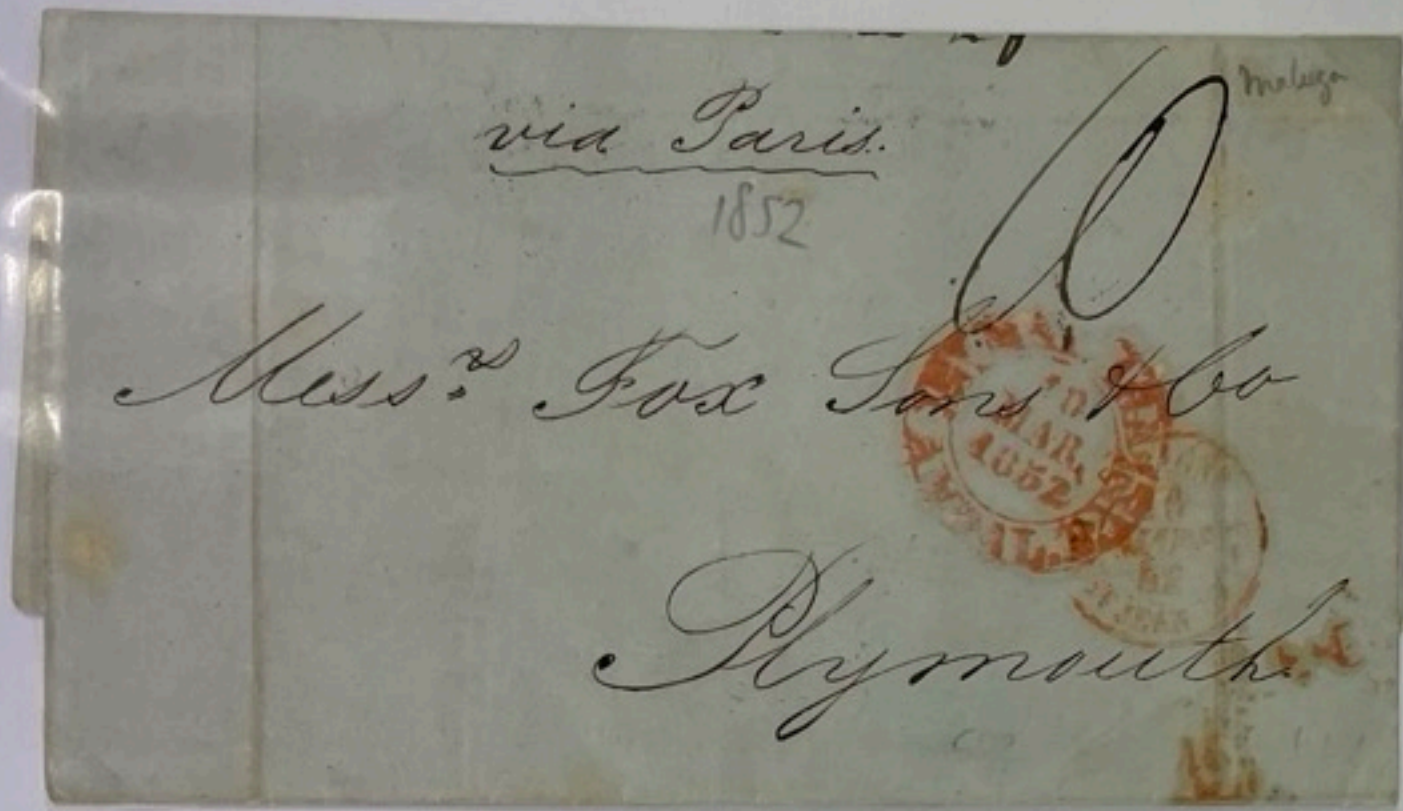 Malaga
via Paris.
1852
10
Mess.rs Fox Sons & Co
MAR.
1852
Plymouth